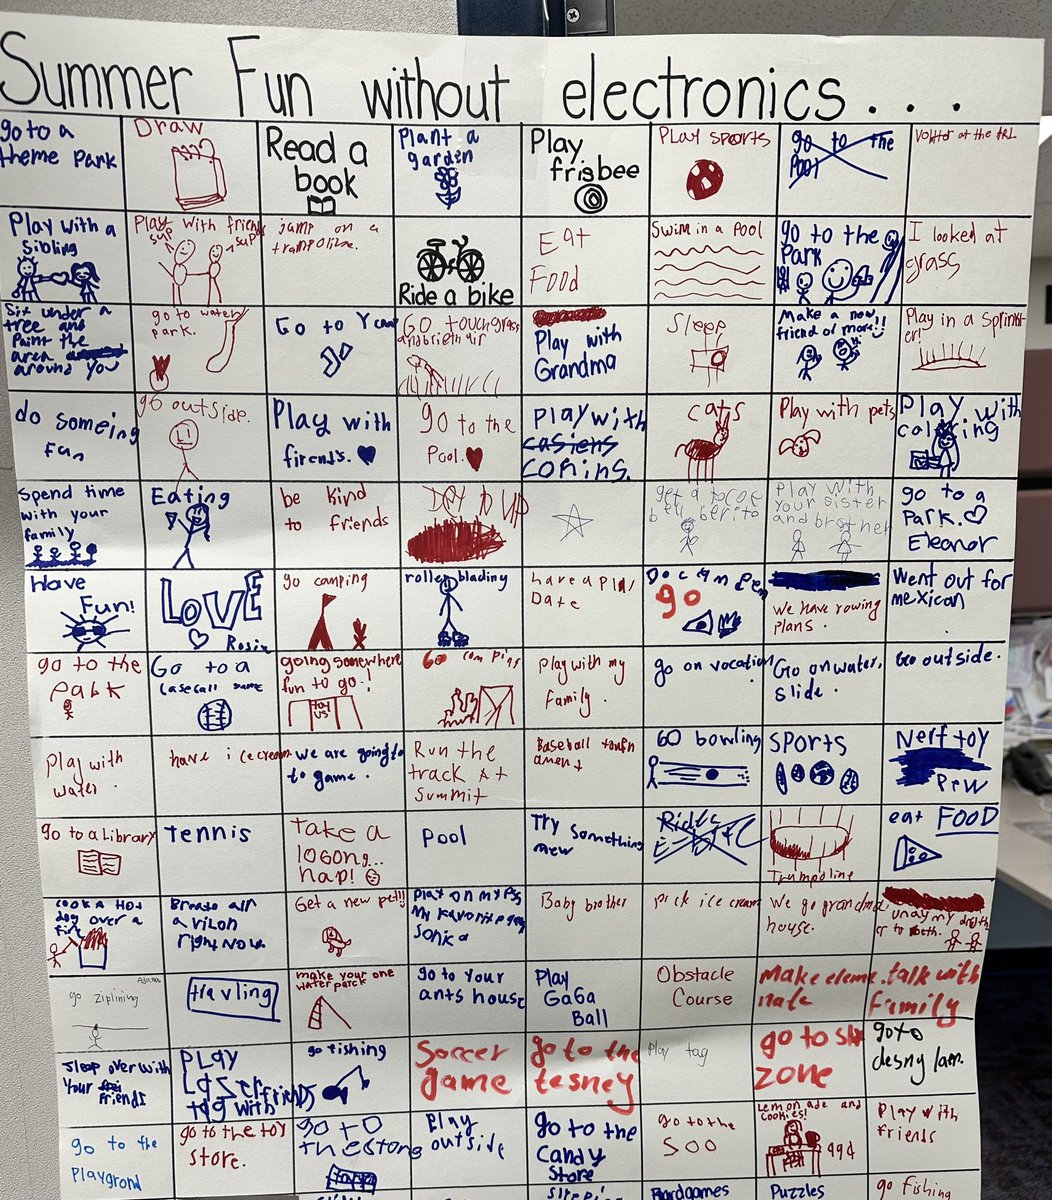 Summer Fun without electronics...
go to a
theme Park
Draw
Read a
book
Plant a
garden
Play
frisbee
Play sports
go to the
Pool
Play with a
Sibling
Play with friends
sup
sup
jump on a
trampoline.
Ride a bike
Eat
Food
Swim in a Pool
go to the
Park
I looked at
grass
Sit under a
tree and
Paint the
area
around you
go to water
park.
Go to
Go touch grass
Play with
Grandma
Sleep
Make a new
friend or more!!
Play in a Sprinkler!
do someing
Fun
go outside.
Play with
firends.
go to the
Pool.
Play with
cats
Play with pets
Play with
Spend time
with your
family
Eating
be kind
to friends
Play with
your sister
and brother
go to a
Park.
Eleanor
Have
Fun!
LOVE
Rosie
go camping
roller blading
have a play
Date
go
we have rowing
plans.
Went out for
mexican
go to the
Park
Go to a
going somewhere
fun to go!
Go
Play with my
family.
go on vocation
Go on water
slide.
Go outside.
Play with
water
have icecream
we are going to
to game.
Run the
track At
Summit
Baseball
GO bowling
SPORTS
Nerf toy
Pew
go to a Library
Tennis
Take a
nap!
Pool
Try something
new
Ride
Trampoline
eat FOOD
COOK A HOT
dog over a
fire
right now
Get a new pet!!
Play on my PS5
Sonic
Baby brother
Pick ice cream
We go grandma
house.
go ziplining
travling
make your one
water parck
go to your
ants house
Play
GaGa
Ball
Obstacle
Course
talk with
family
Sleep over with
Your friends
PLAY
Laser
tag with friends
go fishing
Soccer
game
go to the
Play tag
go to
zone
go to
go to the
Playgrond
go to the toy
store.
go to
Play
outside
go to the
Candy
Store
go to the
soo
Lemon ade and
cookies!
99¢
Play with
friends
Bardgames
Puzzles
go fishing